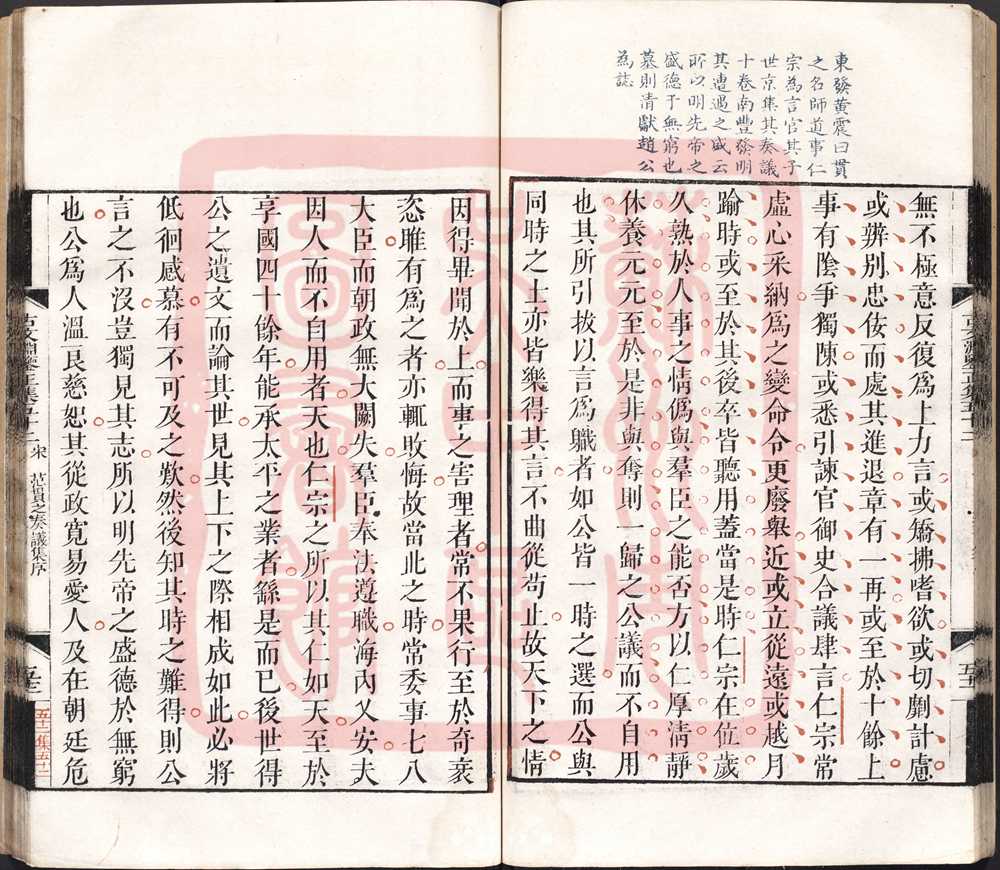 東發黄震曰貫
之名師道事仁
宗為言官其子
世京集其奏議
十卷南豐發明
其遭遇之盛云
所以明先帝之
盛德于無窮也
墓則清獻趙公
為誌
無不極意反復爲上力言或矯拂嗜欲或切劘計慮
或辨別忠佞而處其進退章有一再或至於十餘上
事有陰爭獨陳或悉引諫官御史合議肆言仁宗常
虛心采納爲之變命令更廢舉近或立從遠或越月
踰時或至於其後卒皆聽用蓋當是時仁宗在位歲
久熟於人事之情僞與羣臣之能否方以仁厚清靜
休養元元至於是非與奪則一歸之公議而不自用
也其所引拔以言爲職者如公皆一時之選而公與
同時之士亦皆樂得其言不曲從苟止故天下之情
因得畢聞於上而事之害理者常不果行至於奇衺
恣睢有爲之者亦輒敗悔故當此之時常委事七八
大臣而朝政無大闕失羣臣奉法遵職海內乂安夫
因人而不自用者天也仁宗之所以其仁如天至於
享國四十餘年能承太平之業者繇是而已後世得
公之遺文而論其世見其上下之際相成如此必將
低徊感慕有不可及之歎然後知其時之難得則公
言之不沒豈獨見其志所以明先帝之盛德於無窮
也公爲人溫良慈恕其從政寬易愛人及在朝廷危
宋 范貫之奏議集序